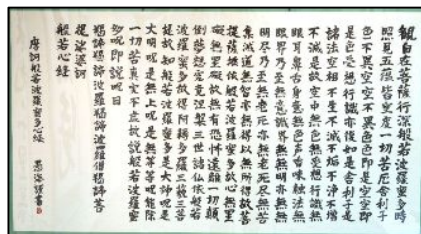 觀自在菩薩行深般若波羅蜜多時
照見五蘊皆空度一切苦厄舍利子
色不異空空不異色色即是空空即
是色受想行識亦復如是舍利子是
諸法空相不生不滅不垢不淨不增
不減是故空中無色無受想行識無
眼耳鼻舌身意無色声香味触法無
眼界乃至無意識界無無明亦無無
明尽乃至無老死亦無老死尽無苦
集滅道無智亦無得以無所得故菩
提薩埵依般若波羅蜜多故心無罣
礙無罣礙故無有恐怖遠離一切顛
倒夢想究竟涅槃三世諸仏依般若
波羅蜜多故得阿耨多羅三藐三菩
提故知般若波羅蜜多是大神呪是
大明呪是無上呪是無等等呪能除
一切苦真実不虚故説般若波羅蜜
多呪即説呪曰
羯諦羯諦波羅羯諦波羅僧羯諦菩
提娑婆訶
般若心経
摩訶般若波羅蜜多心経